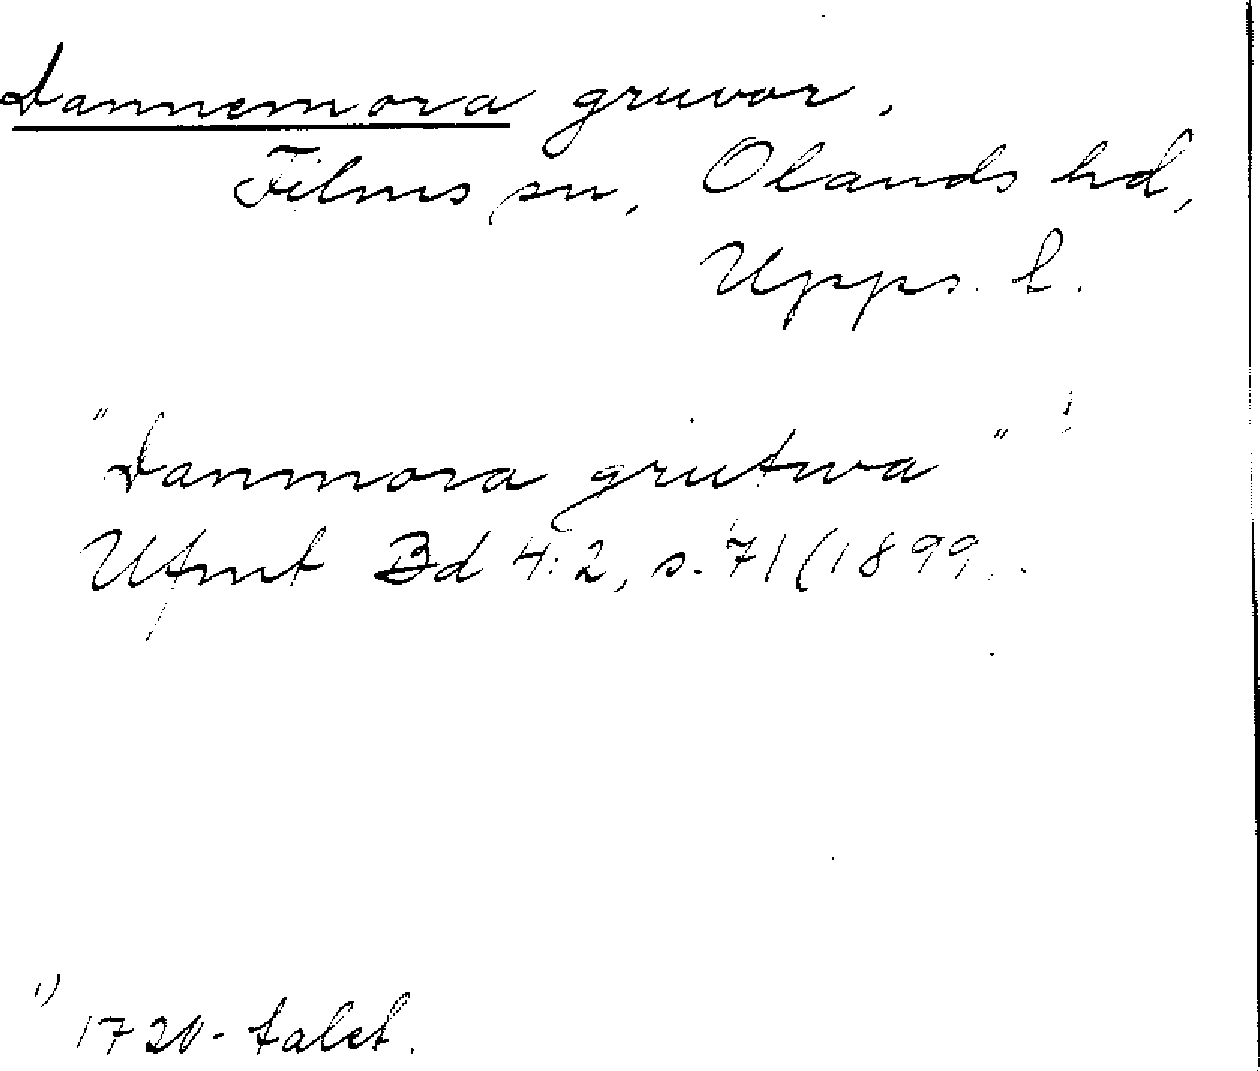 Dannemora gruvor,
Films sn, Olands hd,
Upps. l.
"Danmora grutwa" 1)
Ufmt Bd 4:2, s. 71 (1899..
1) 1720-talet.